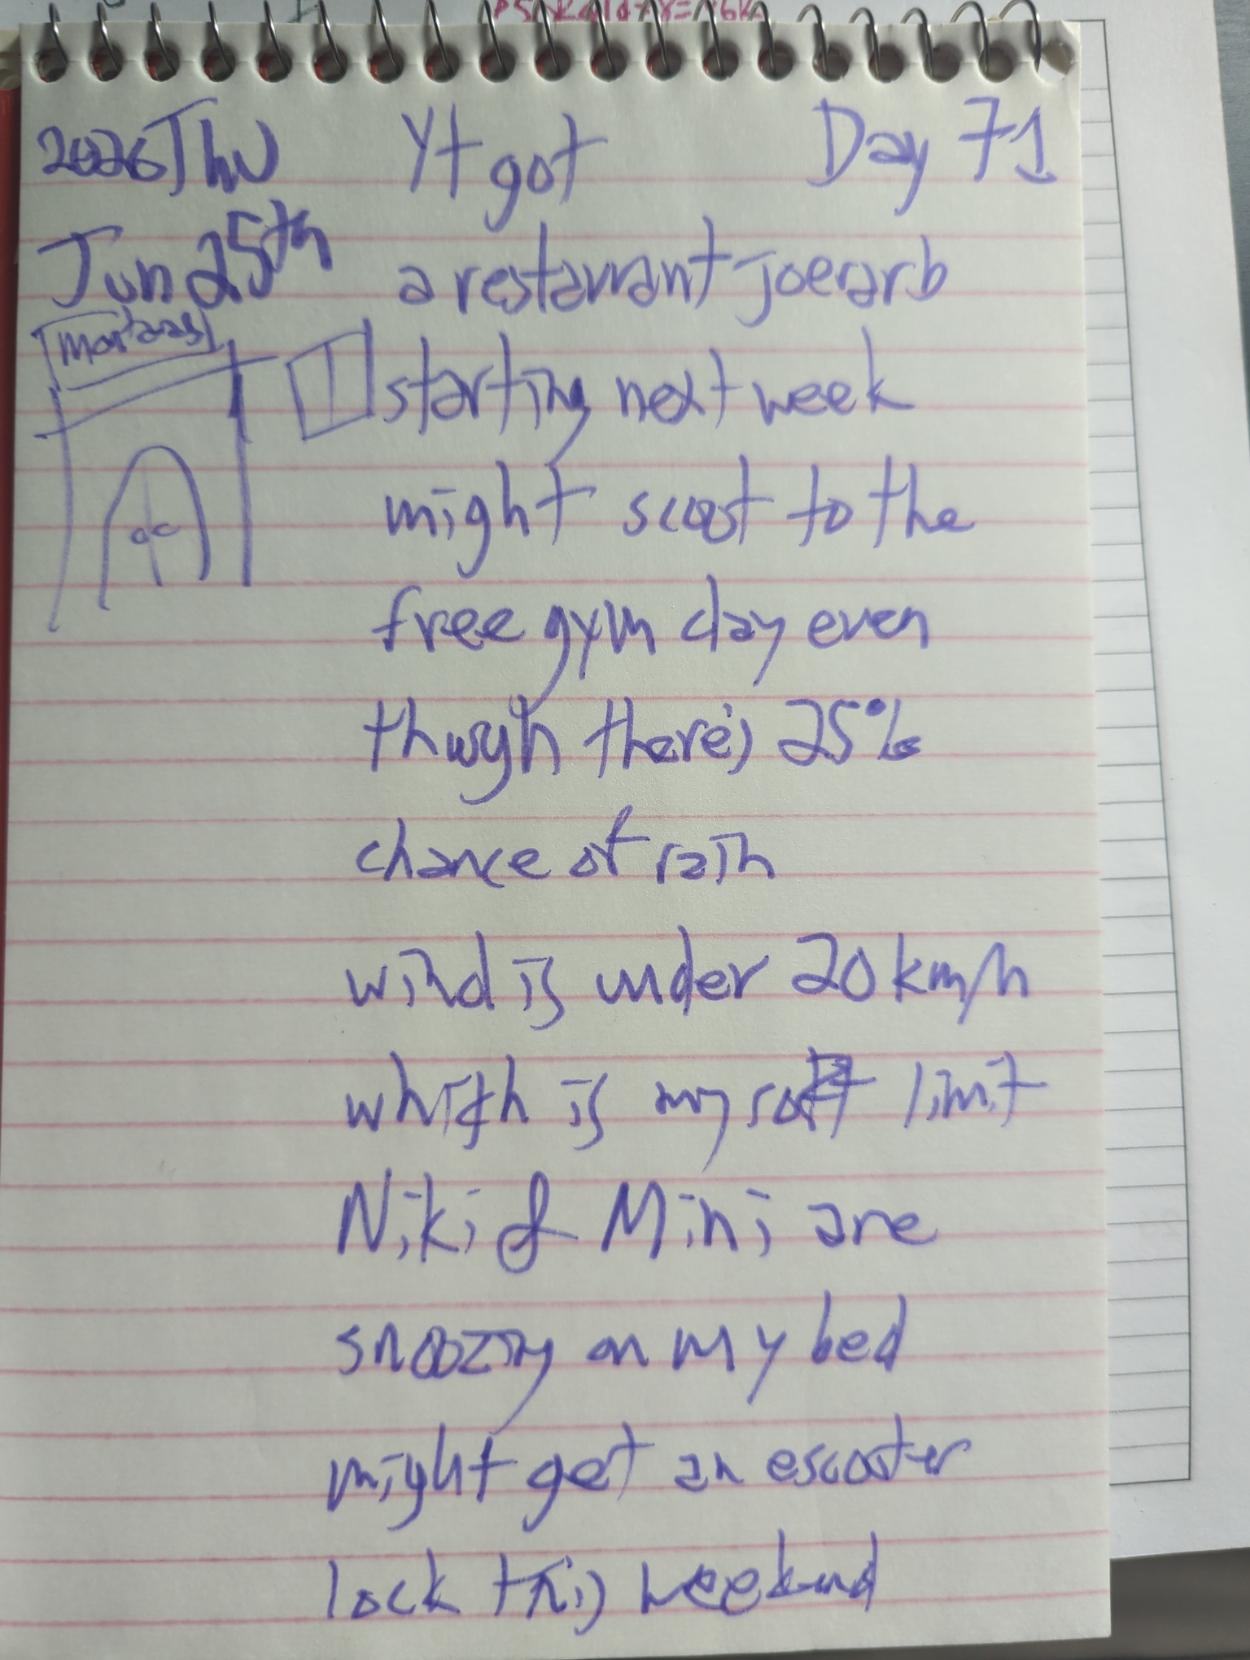 2026 Thu Yt got Day 71
Jun 25th a restaurant joerarb
starting next week
might scoot to the
free gym day even
though there's 25%
chance of rain
wind is under 20 km/h
which is my soft limit
Niki & Mini are
snoozing on my bed
might get an escooter
lock this weekend